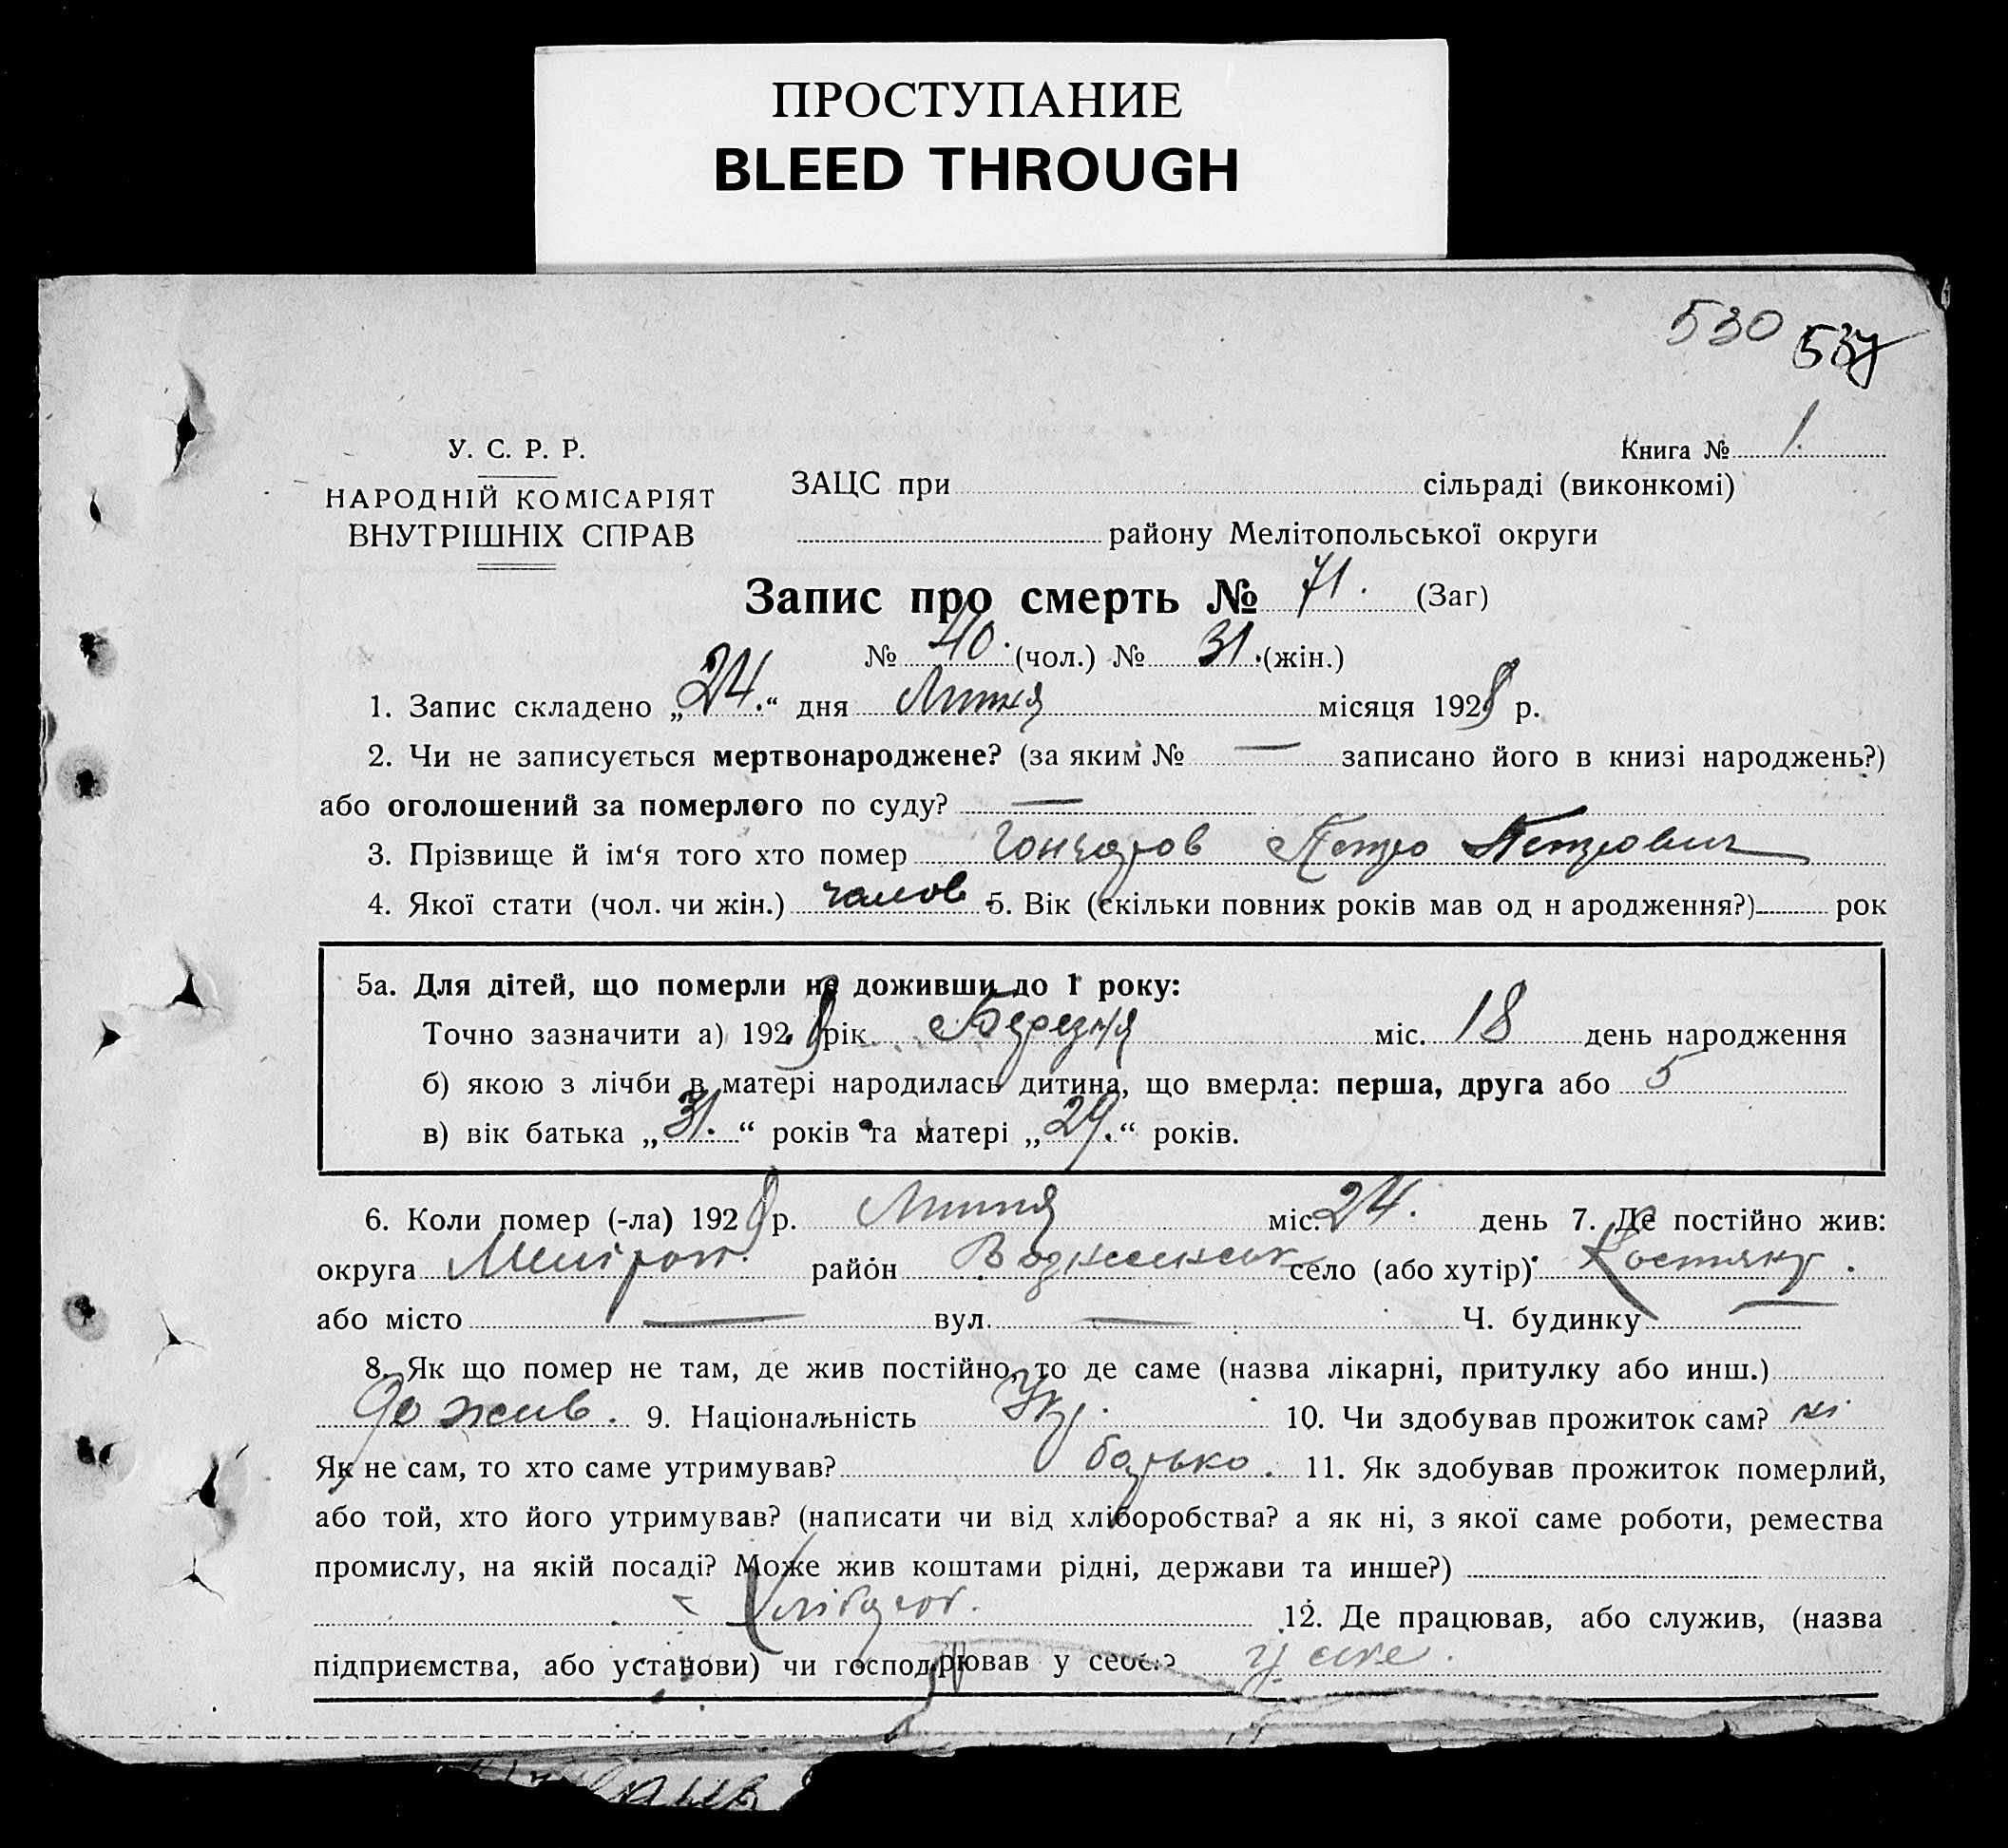 ПРОСТУПАНИЕ
BLEED THROUGH
530 537
У. С. Р. Р.
НАРОДНІЙ КОМІСАРІЯТ
ВНУТРІШНІХ СПРАВ
Книга № 1.
ЗАЦС при сільраді (виконкомі)
району Мелітопольської округи
Запис про смерть № 71. (Заг)
№ 40. (чол.) № 31. (жін.)
1. Запис складено „24.“ дня Липня місяця 1928 р.
2. Чи не записується мертвонароджене? (за яким № — записано його в книзі народжень?)
або оголошений за померлого по суду? —
3. Прізвище й ім‘я того хто помер Гончаров Петро Петрович
4. Якої стати (чол. чи жін.) чолов. 5. Вік (скільки повних років мав од н ародження?) рок
5а. Для дітей, що померли не доживши до 1 року:
Точно зазначити а) 1928 рік Березня міс. 18 день народження
б) якою з лічби в матері народилась дитина, що вмерла: перша, друга або 5
в) вік батька „31.“ років та матері „29.“ років.
6. Коли помер (-ла) 1928 р. Липня міс. 24. день 7. Де постійно жив:
округа район село (або хутір)
або місто — вул. — Ч. будинку —
8. Як що помер не там, де жив постійно, то де саме (назва лікарні, притулку або инш.)
де жив. 9. Національність Укр. 10. Чи здобував прожиток сам? ні
Як не сам, то хто саме утримував? батько. 11. Як здобував прожиток померлий,
або той, хто його утримував? (написати чи від хліборобства? а як ні, з якої саме роботи, ремества
промислу, на якій посаді? Може жив коштами рідні, держави та инше?)
Хлібороб. 12. Де працював, або служив, (назва
підприємства, або установи) чи господарював у себе?